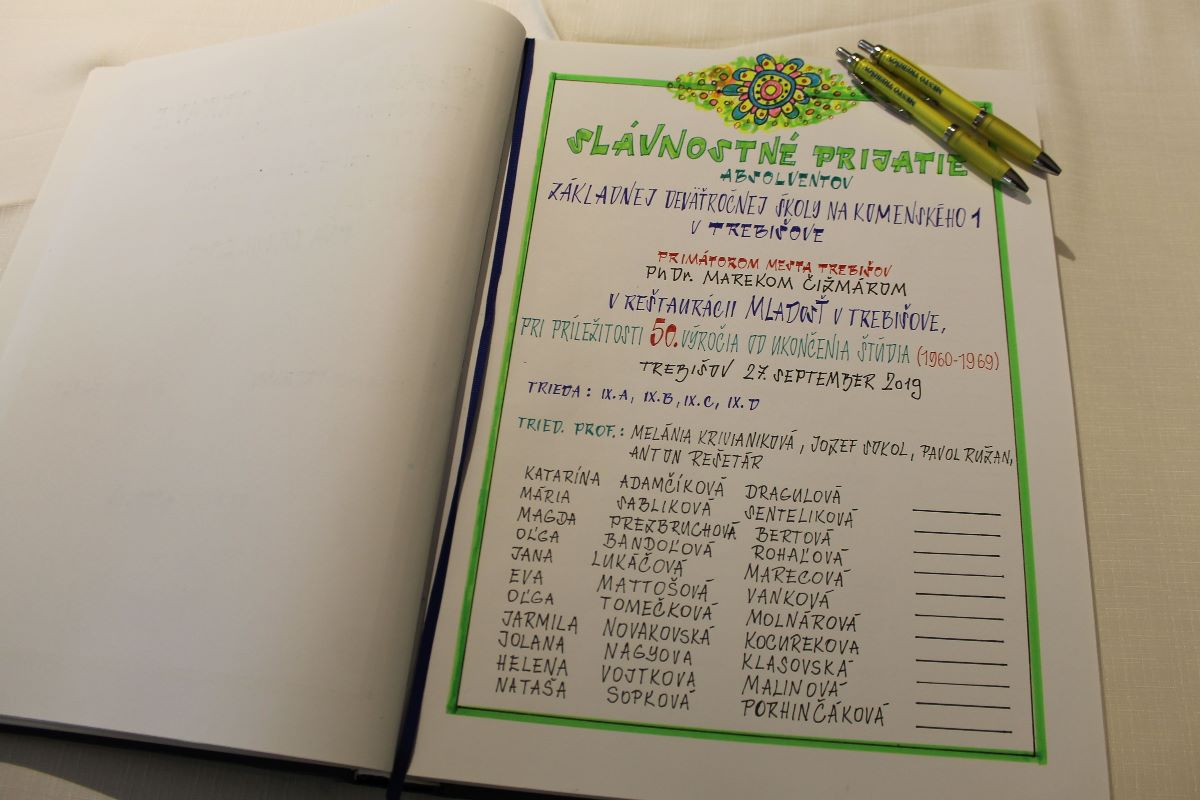 SLÁVNOSTNÉ PRIJATIE
ABSOLVENTOV
ZÁKLADNEJ DEVÄŤROČNEJ ŠKOLY NA KOMENSKÉHO 1
V TREBIŠOVE
PRIMÁTOROM MESTA TREBIŠOV
PhDr. MAREKOM ČIŽMÁROM
V REŠTAURÁCII MLADOSŤ V TREBIŠOVE,
PRI PRÍLEŽITOSTI 50. VÝROČIA OD UKONČENIA ŠTÚDIA (1960-1969)
TREBIŠOV 27. SEPTEMBER 2019
TRIEDA: IX.A, IX.B, IX.C, IX.D
TRIED. PROF.: MELÁNIA KRIVIANIKOVÁ, JOZEF SOKOL, PAVOL RUŽAN,
ANTON REŠETÁR
KATARÍNA ADAMČÍKOVÁ DRAGULOVÁ
MÁRIA SABLIKOVÁ SENTELIKOVÁ
MAGDA PREZBRUCHOVÁ BERTOVÁ
OĽGA BANDOĽOVÁ ROHAĽOVÁ
JANA LUKÁČOVÁ MARECOVÁ
EVA MATTOŠOVÁ VANKOVÁ
OĽGA TOMEČKOVÁ MOLNÁROVÁ
JARMILA NOVAKOVSKÁ KOCUREKOVA
JOLANA NAGYOVA KLASOVSKÁ
HELENA VOJTKOVA MALINOVÁ
NATAŠA SOPKOVÁ PORHINČÁKOVÁ